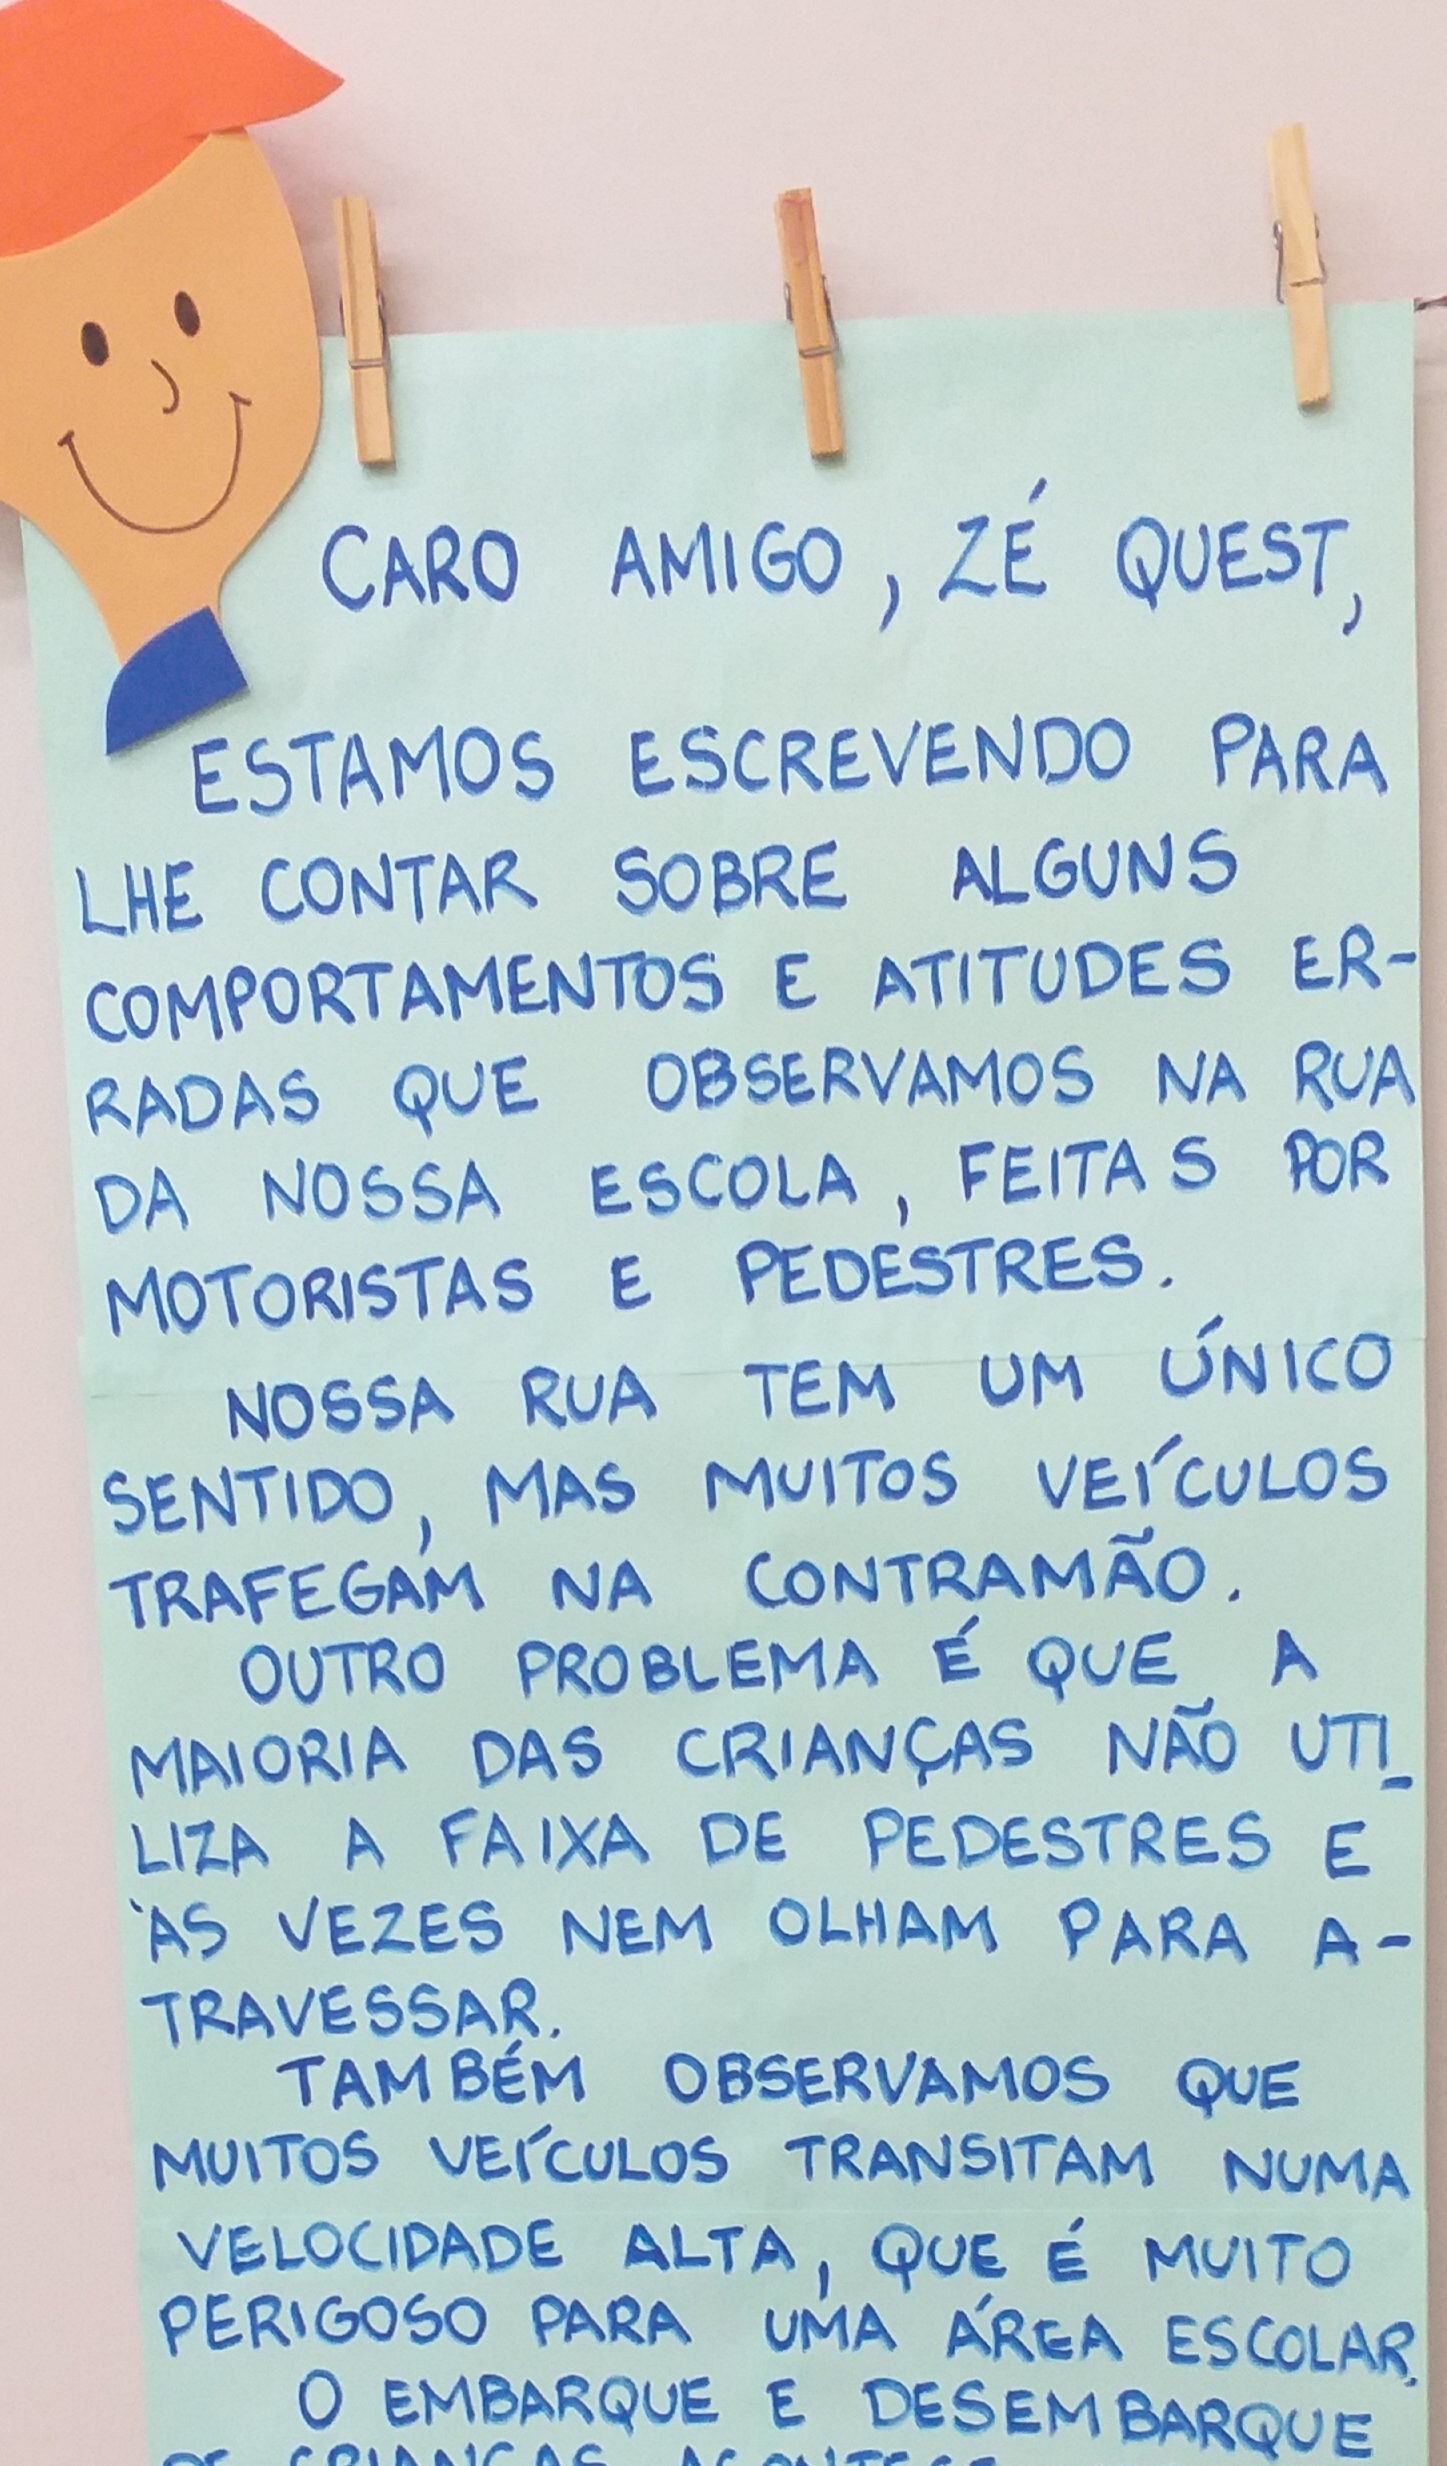 CARO AMIGO, ZÉ QUEST,
ESTAMOS ESCREVENDO PARA
LHE CONTAR SOBRE ALGUNS
COMPORTAMENTOS E ATITUDES ER-
RADAS QUE OBSERVAMOS NA RUA
DA NOSSA ESCOLA, FEITAS POR
MOTORISTAS E PEDESTRES.
NOSSA RUA TEM UM ÚNICO
SENTIDO, MAS MUITOS VEÍCULOS
TRAFEGAM NA CONTRAMÃO.
OUTRO PROBLEMA É QUE A
MAIORIA DAS CRIANÇAS NÃO UTI_
LIZA A FAIXA DE PEDESTRES E
ÀS VEZES NEM OLHAM PARA A-
TRAVESSAR.
TAMBÉM OBSERVAMOS QUE
MUITOS VEÍCULOS TRANSITAM NUMA
VELOCIDADE ALTA, QUE É MUITO
PERIGOSO PARA UMA ÁREA ESCOLAR.
O EMBARQUE E DESEMBARQUE
DE CRIANÇAS ACONTECE